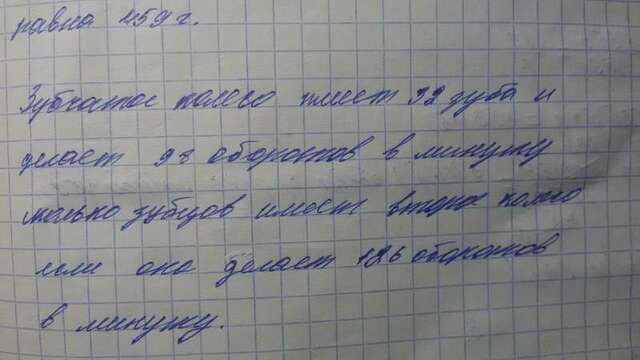 равна 459 г.
Зубчатое колесо имеет 32 зуба и
делает 98 оборотов в минуту
сколько зубцов имеет второе колесо
если оно делает 126 оборотов
в минуту.